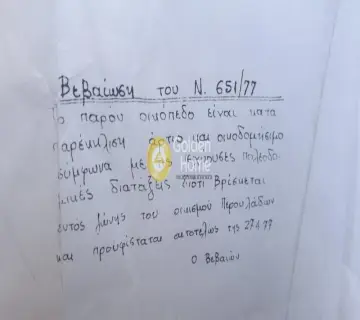 Βεβαίωση του Ν. 651/77
Το παρον οικόπεδο είναι κατα
παρέκκλιση άρτιο και οικοδομησιμο
σύμφωνα με τις ισχυουσες πολεοδο
μικές διατάξεις διοτι βρίσκεται
εντός ζώνης του οικισμού Περουλάδων
και προυφίσταται αυτοτελως της
Ο Βεβαιών
Golden Home